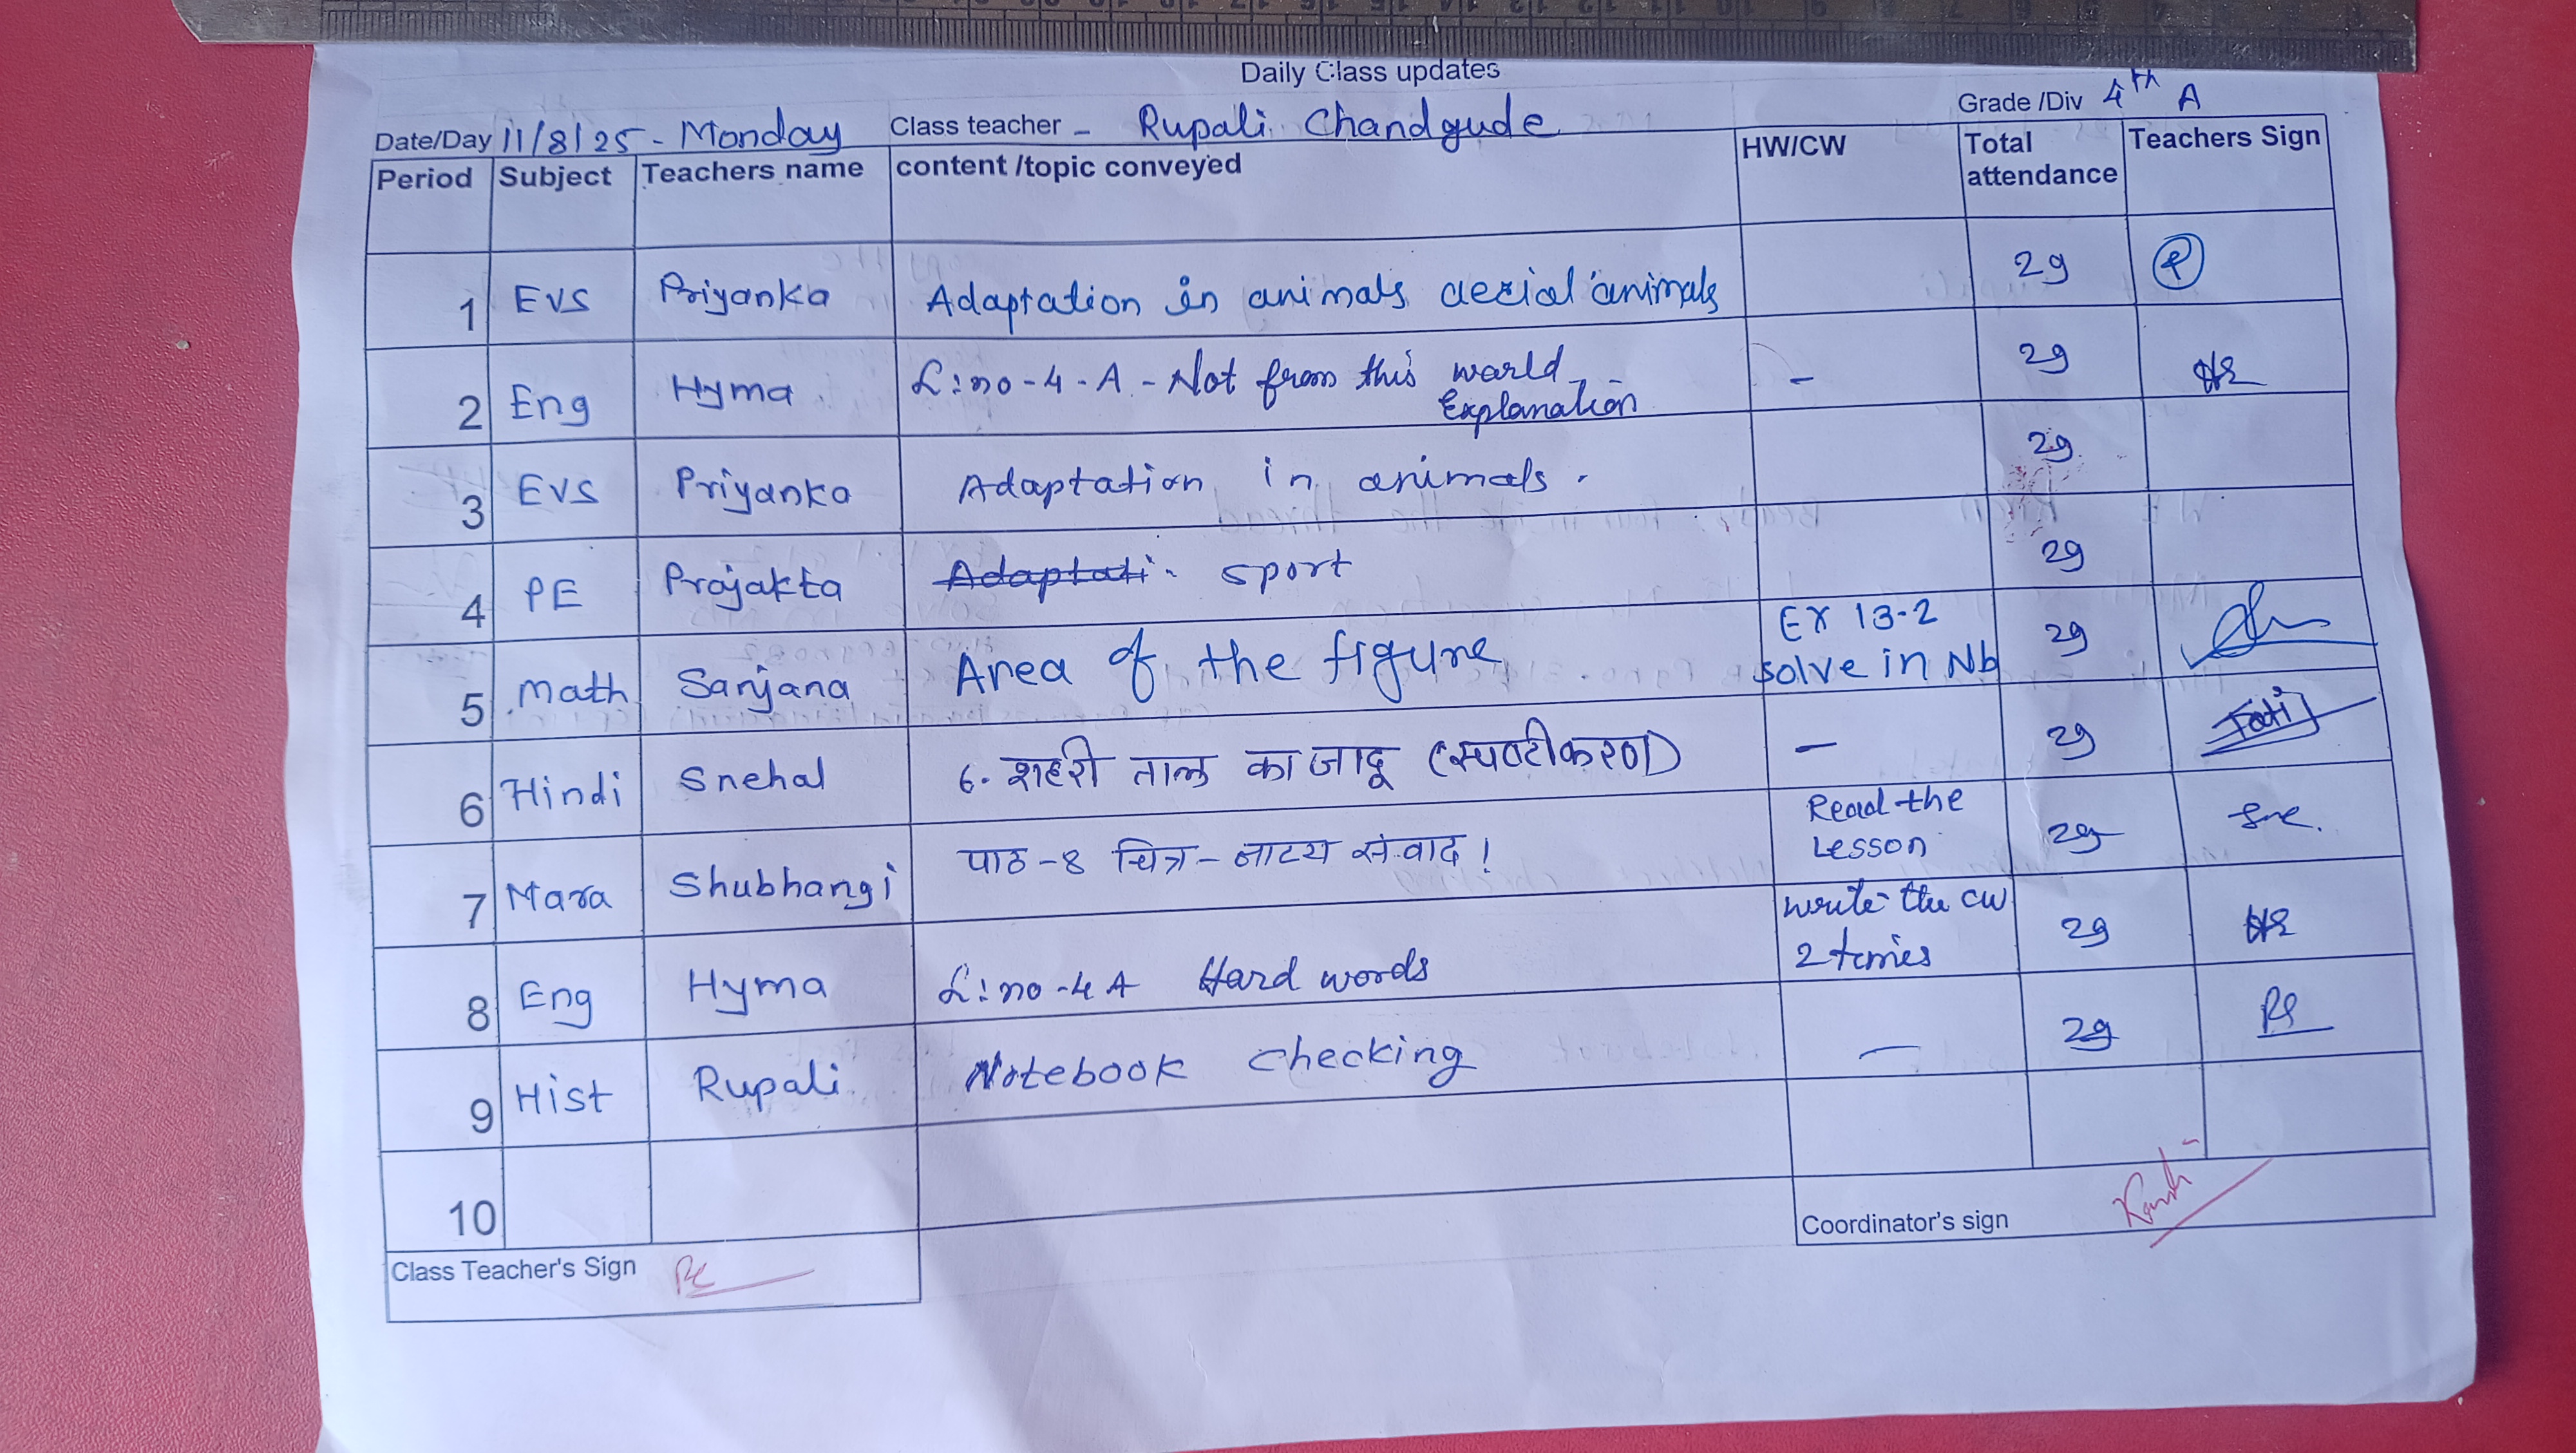 Daily Class updates
Date/Day 11/8/25 - Monday Class teacher - Rupali Chandgude Grade /Div 4th A
Period Subject Teachers name content /topic conveyed HW/CW Total attendance Teachers Sign
1 EVS Priyanka Adaptation in animals aerial animals 29 P
2 Eng Hyma L:no-4-A - Not from this world - 29
Explanation
3 EVS Priyanka Adaptation in animals. 29
4 PE Prajakta Adaptati- sport 29
5 Math Sanjana Area of the figure Ex 13-2 solve in Nb 29
6 Hindi Snehal 6. शहरी ताल का जादू (स्पष्टीकरण) - 29
7 Mara Shubhangi पाठ-8 चित्र-नाट्य संवाद! Read the Lesson 29
8 Eng Hyma L:no-4 A Hard words write the cw 2 times 29
9 Hist Rupali Notebook checking - 29
10
Class Teacher's Sign
Coordinator's sign